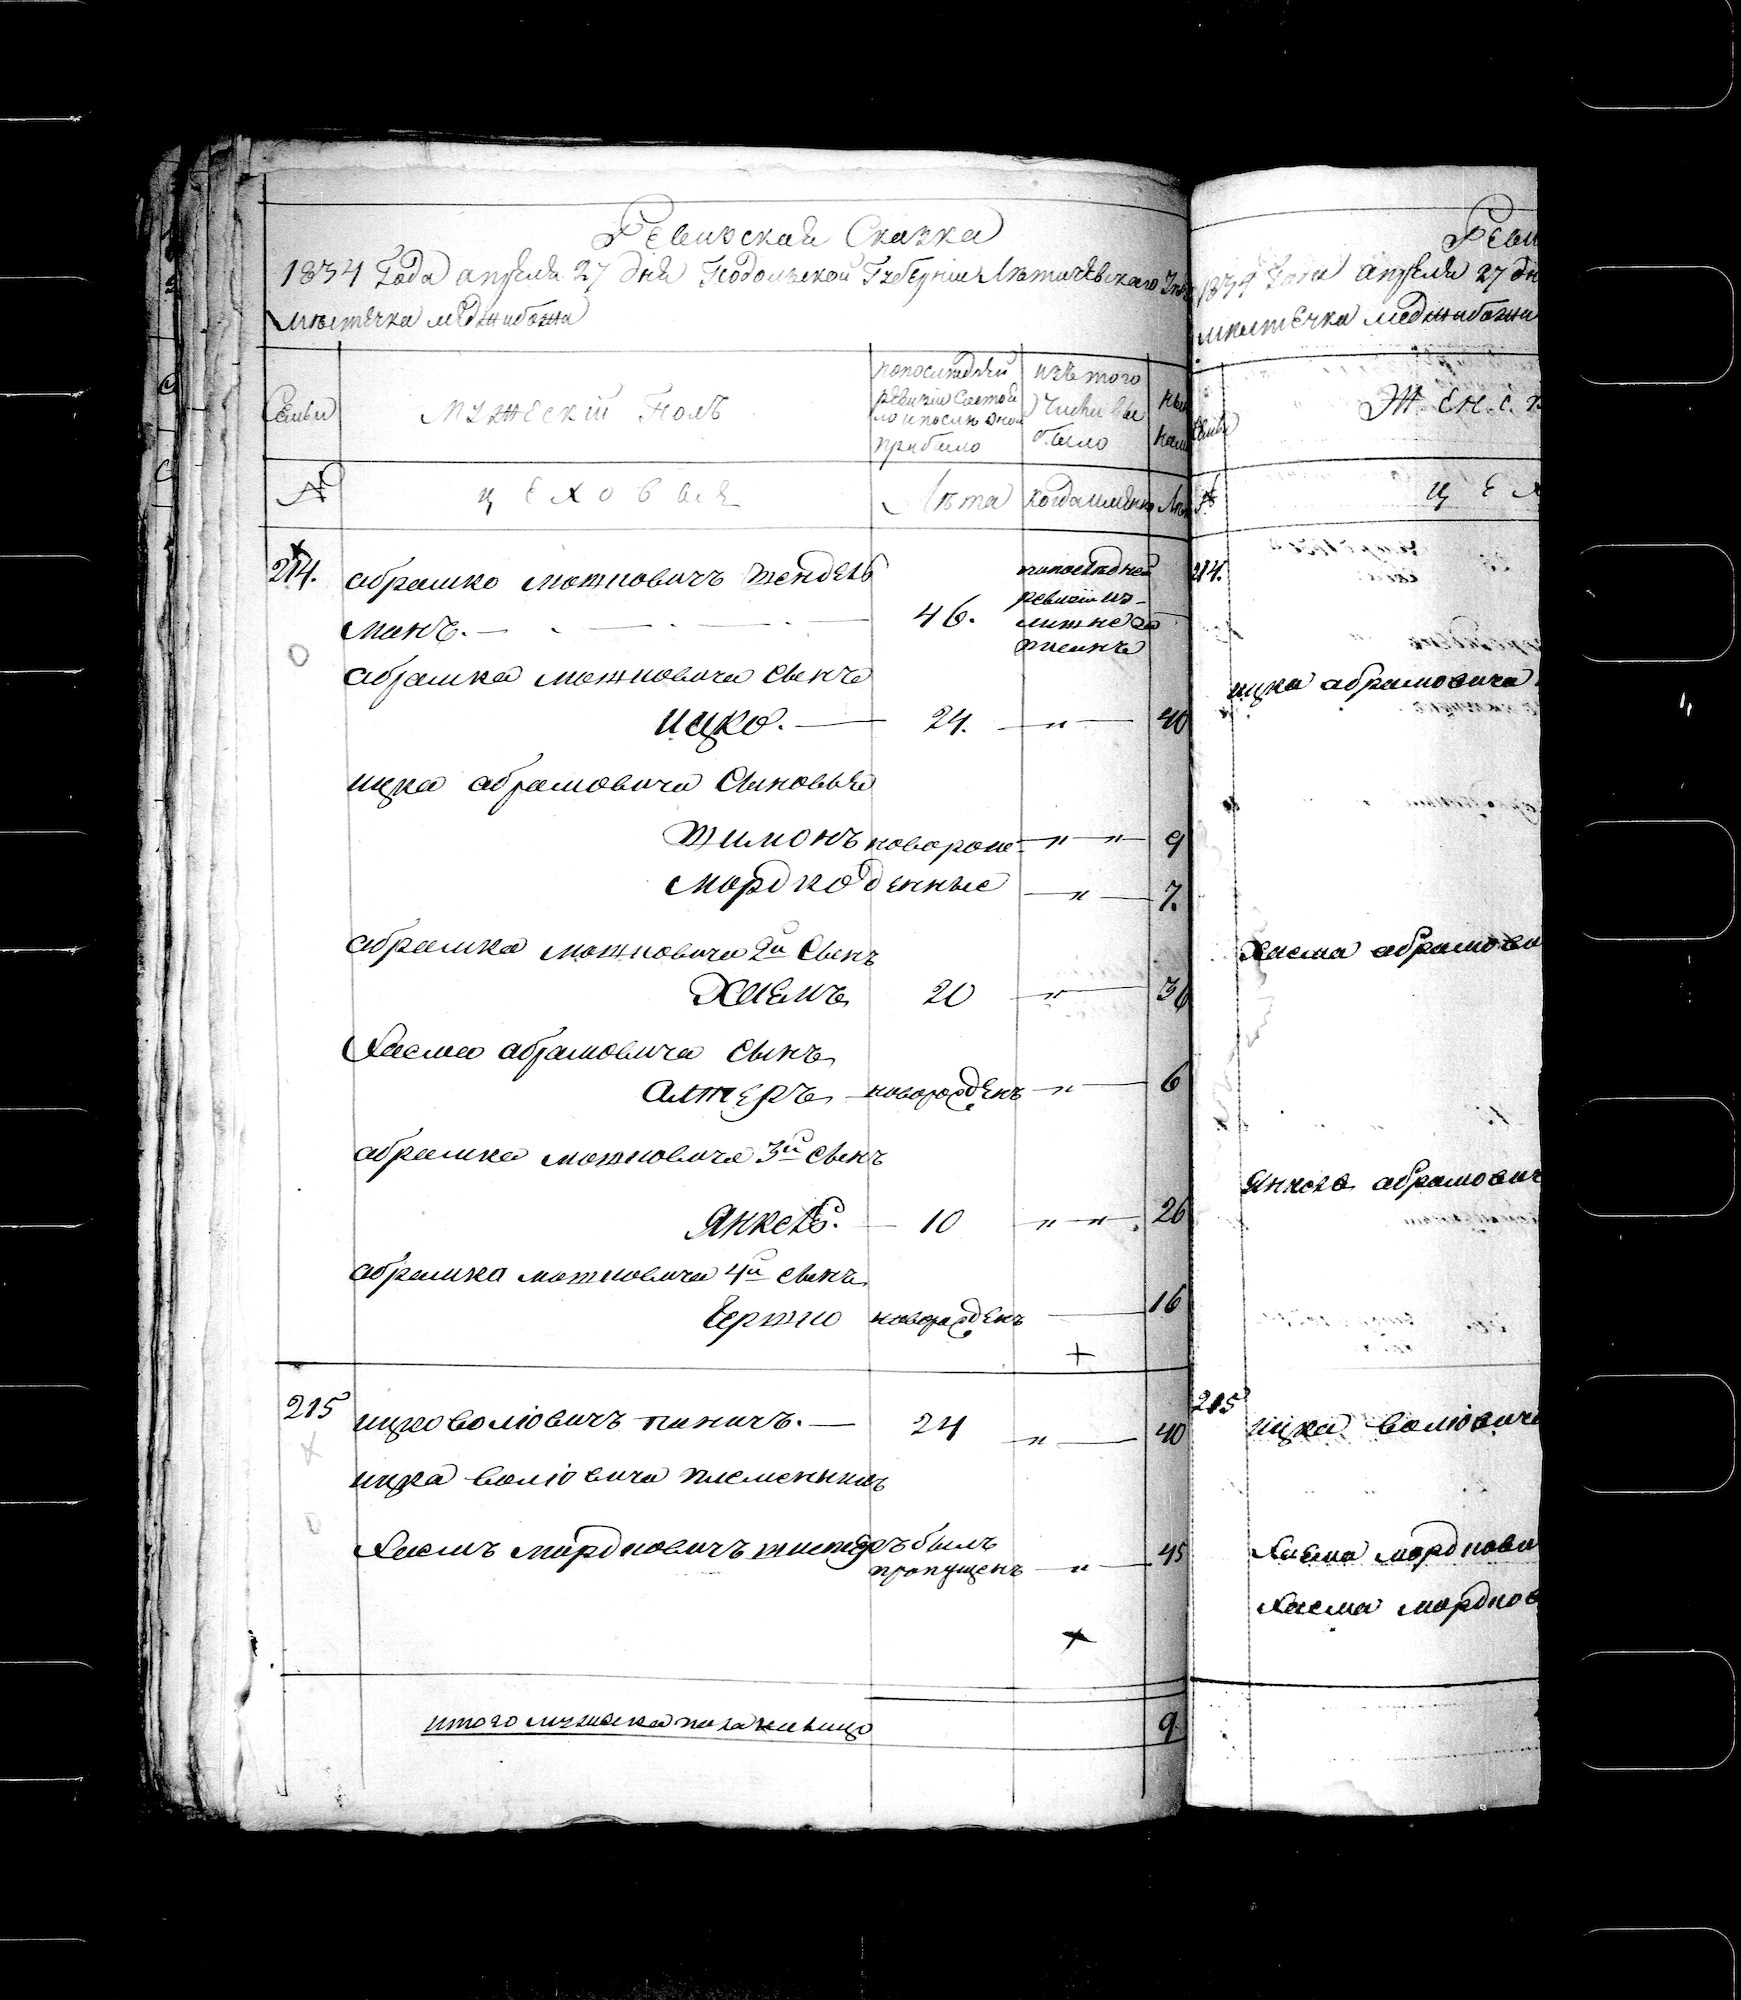 Ревизская Сказка
1834 Года апреля 27 дня Подольской Губернии Летичевского
местечка меджибожа
Семьи
мужеский Полъ
попоследней
ревизии Состоя
ло и после оной
прибыло
изътого
Числа вы
было
№
цеховыя
Лета
когдаименно
214.
абрашко мошковичъ жендель
манъ.
46.
попоследней
ревизии
абрашка мошковича сынъ
ицко.
24.
"
40
ицка абрамовича Сыновья
Шимонъ новорож
" "
9
мордко денные
"
7.
абрашка мошковича 2й Сынъ
Хаемъ
20
"
36
Хаема абрамовича сынъ
алтеръ
новорожденъ
"
6
абрашка мошковича 3й сынъ
Янкель.
10
" "
26
абрашка мошковича 4й сынъ
Гершко
новорожденъ
16
+
215
ицко волковичъ пиничъ.
24
"
40
ицка волковича племенникъ
Хаемъ мордковичъ былъ
пропущенъ
"
45
+
итого мужеска пола налицо
9
Реви
1834 Года апреля 27 дн
местечка меджибожа
Семьи
Жен. с. п
№
ц е х
214.
ицка абрамовича
Хаема абрамови
Янкеля абрамович
215
ицка волковича
Хаема мордкови
Хаема мордков